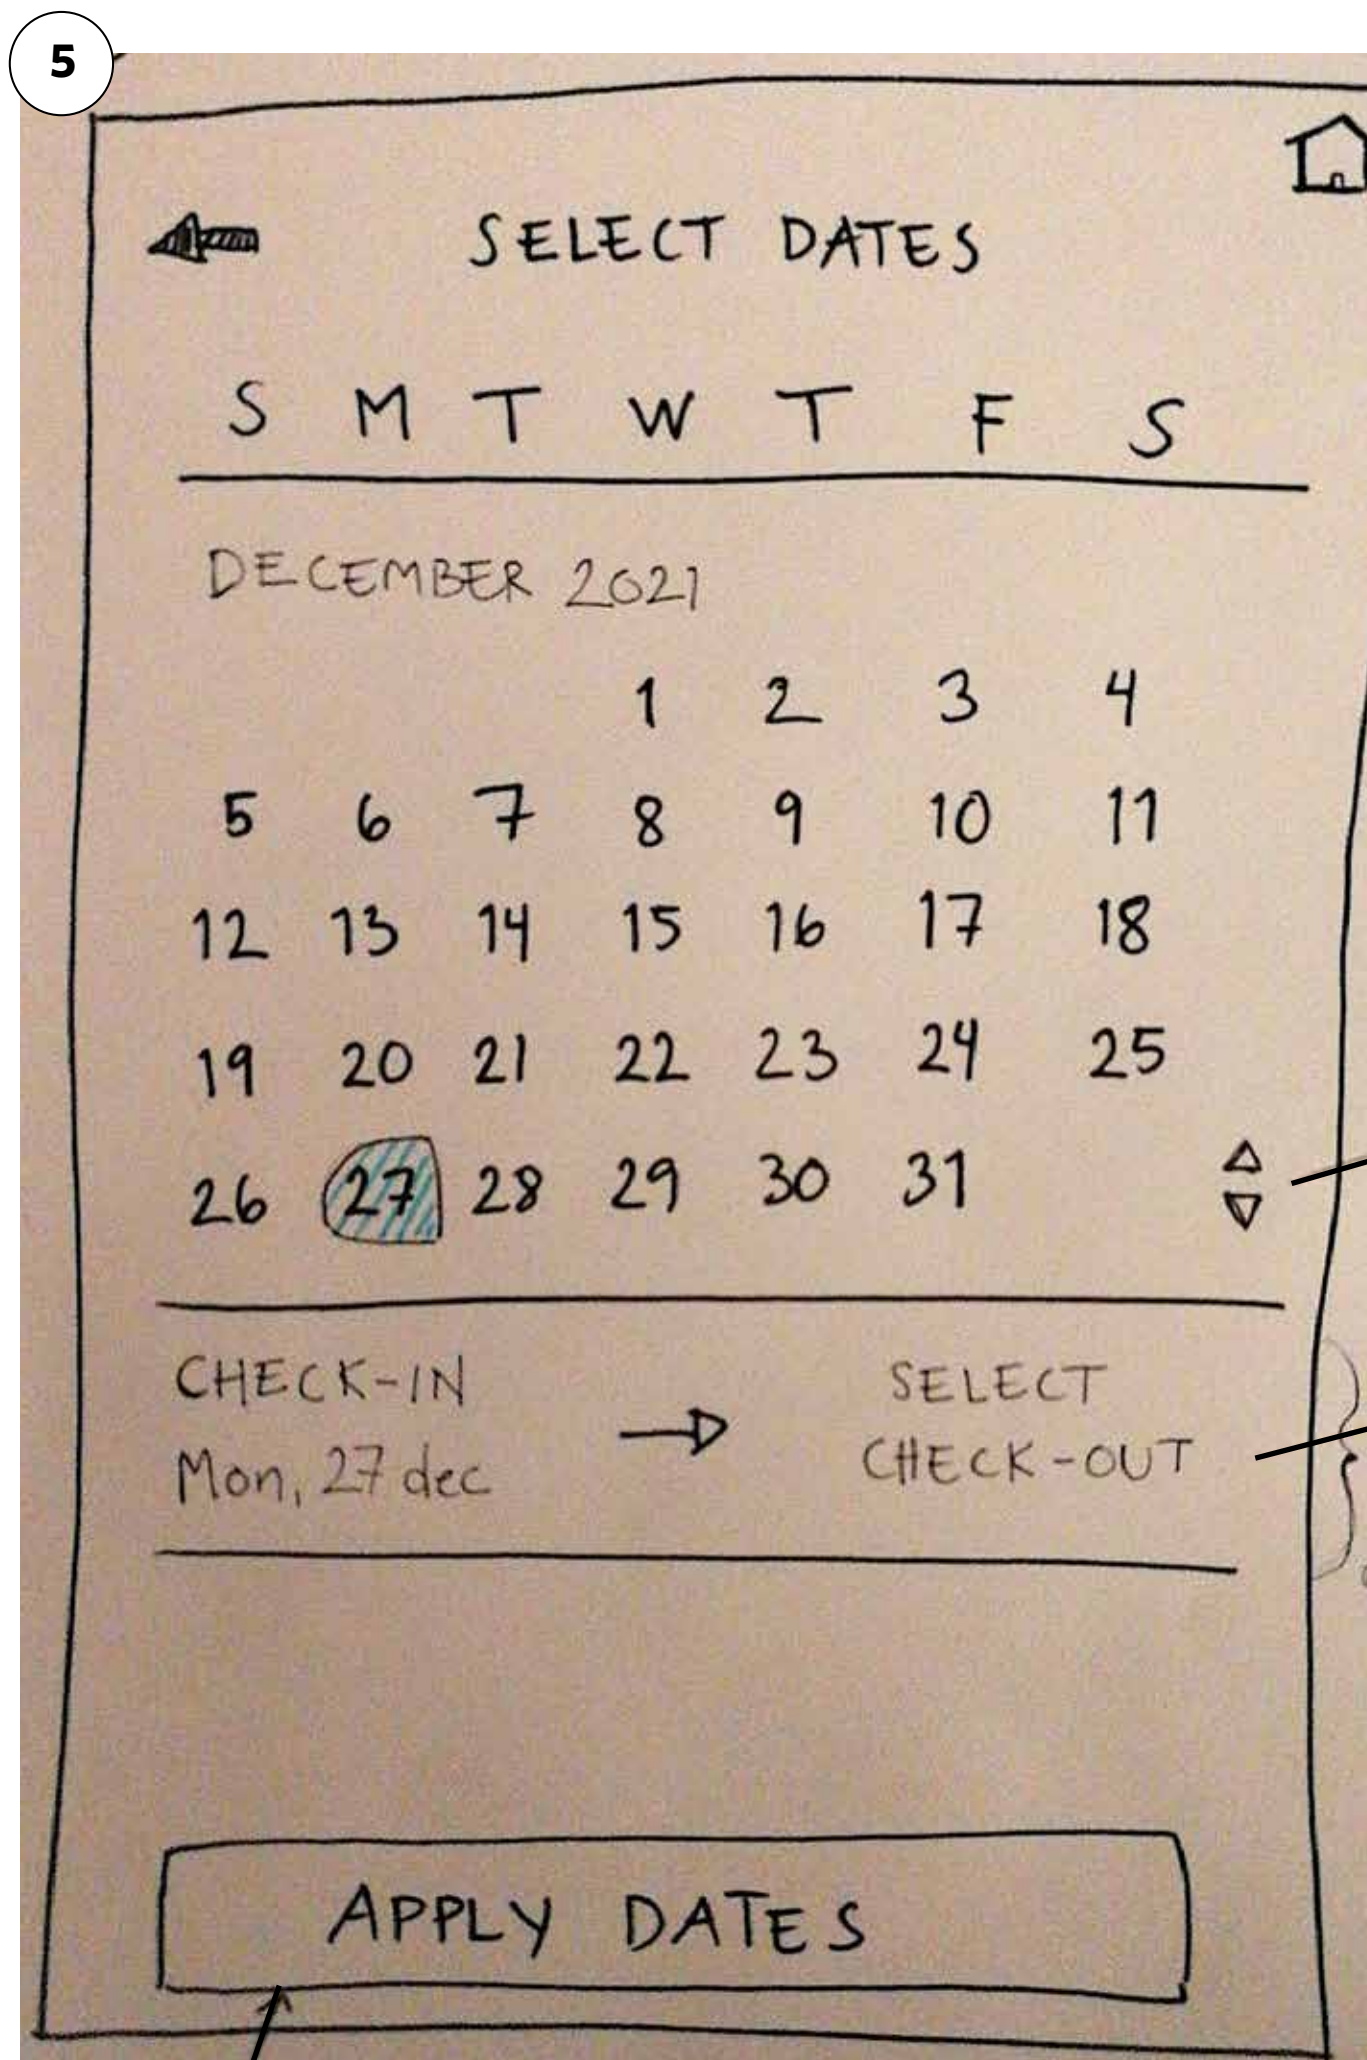 5
SELECT DATES
S M T W T F S
DECEMBER 2021
1 2 3 4
5 6 7 8 9 10 11
12 13 14 15 16 17 18
19 20 21 22 23 24 25
26 27 28 29 30 31
CHECK-IN SELECT
Mon, 27 dec CHECK-OUT
APPLY DATES